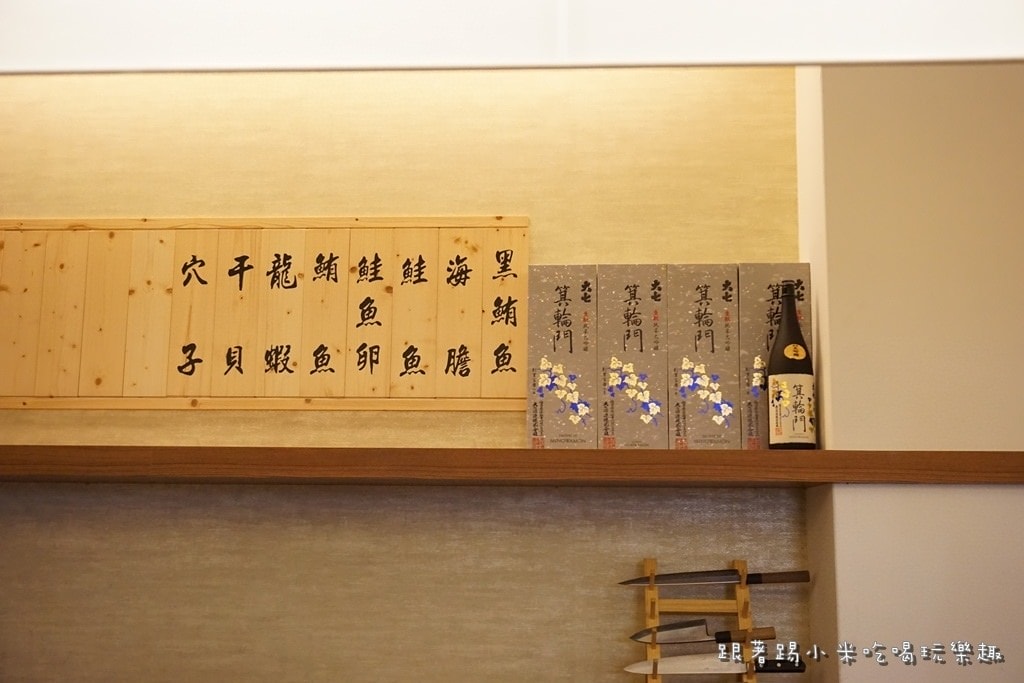 黑鮪魚
海膽
鮭魚
鮭魚卵
鮪魚
龍蝦
干貝
穴子
大七
箕輪門
大七
箕輪門
大七
箕輪門
大七
箕輪門
箕輪門
MINOWAMON
跟著踢小米吃喝玩樂趣